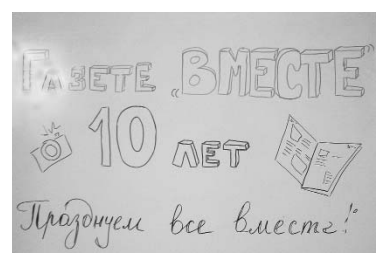 ГАЗЕТЕ „ВМЕСТЕ"
10 ЛЕТ
Празднуем все вместе!